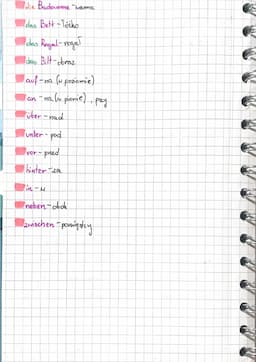 die Badewanne - wanna
das Bett - łóżko
das Regal - regał
das Bild - obraz
auf - na (w poziomie)
an - na (w pionie), przy
über - nad
unter - pod
vor - przed
hinter - za
in - w
neben - obok
zwischen - pomiędzy